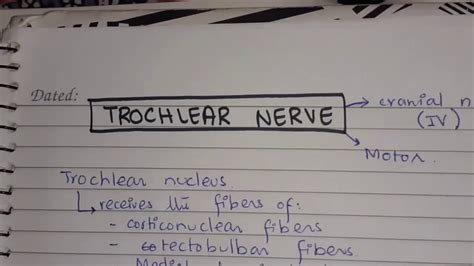 Dated:
TROCHLEAR NERVE
cranial n
(IV)
Motor.
Trochlear nucleus.
receives the fibers of:
- corticonuclear fibers
- tectobulbar fibers.